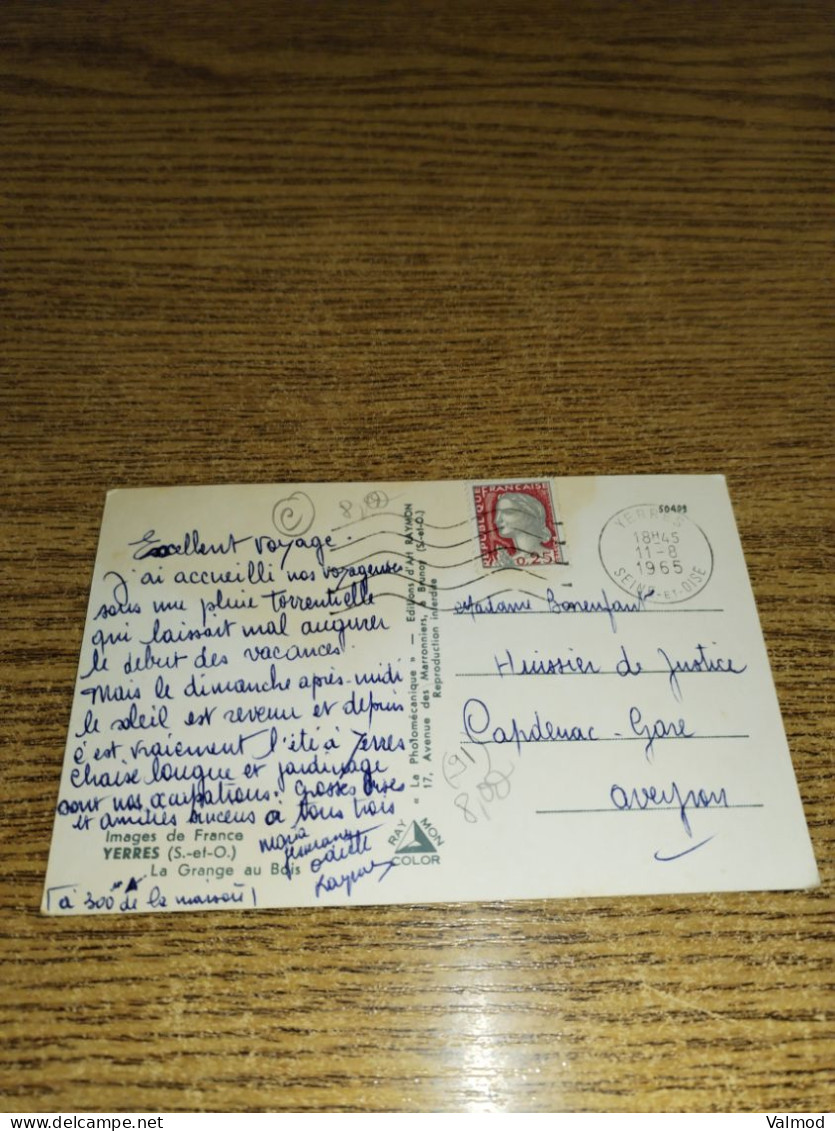 © 8,00
Excellent voyage.
J'ai accueilli nos voyageuses
sous une pluie torrentielle
qui laissait mal augurer
le début des vacances.
Mais le dimanche après-midi
le soleil est revenu et depuis
c'est vraiment l'été à Yerres
Chaise longue et jardinage
sont nos occupations. Grosses bises
et amitiés sincères à tous trois
Odette
Images de France
YERRES (S.-et-O.)
La Grange au Bois
(à 300 m de la maison)
RAYMON
COLOR
« La Photomécanique » — Editions d'Art RAYMON
17, Avenue des Marronniers, à Brunoy (S.-et-O.)
Reproduction interdite
REPUBLIQUE FRANÇAISE
0,25
50409
YERRES
18H45
11-8
1965
SEINE-ET-OISE
Madame Bonenfant
Huissier de Justice
Capdenac-Gare
Aveyron
(91)
8,00
Valmod
delcampe.net